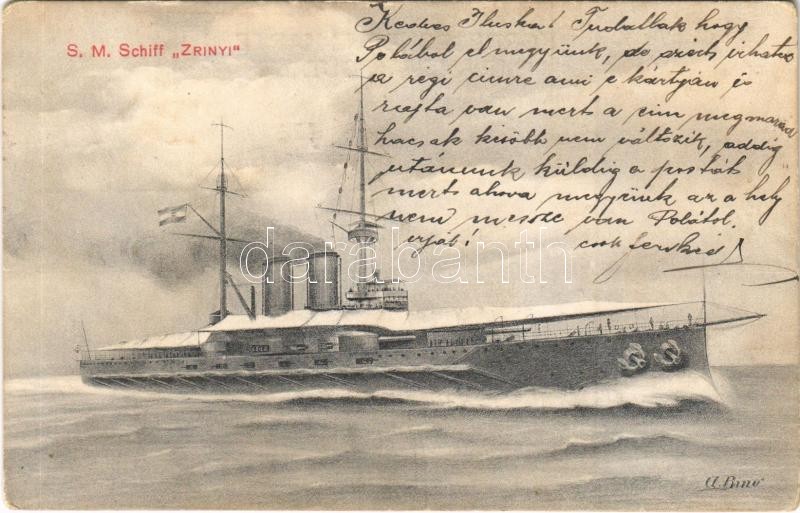 S. M. Schiff „ZRINYI“
Kedves Iluska! Tudallak hogy
Polából el megyünk, de azért irhatsz
a régi cimre ami e kártyán is
rajta van mert a cim megmarad
hacsak később nem változik, addig
utánunk küldig a postát
mert ahova megyünk az a hely
nem messze van Polától.
irját! csok ferked
darabanth
A. Kirc